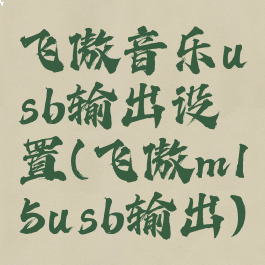 飞傲音乐u
sb输出设
置(飞傲ml
5usb输出)